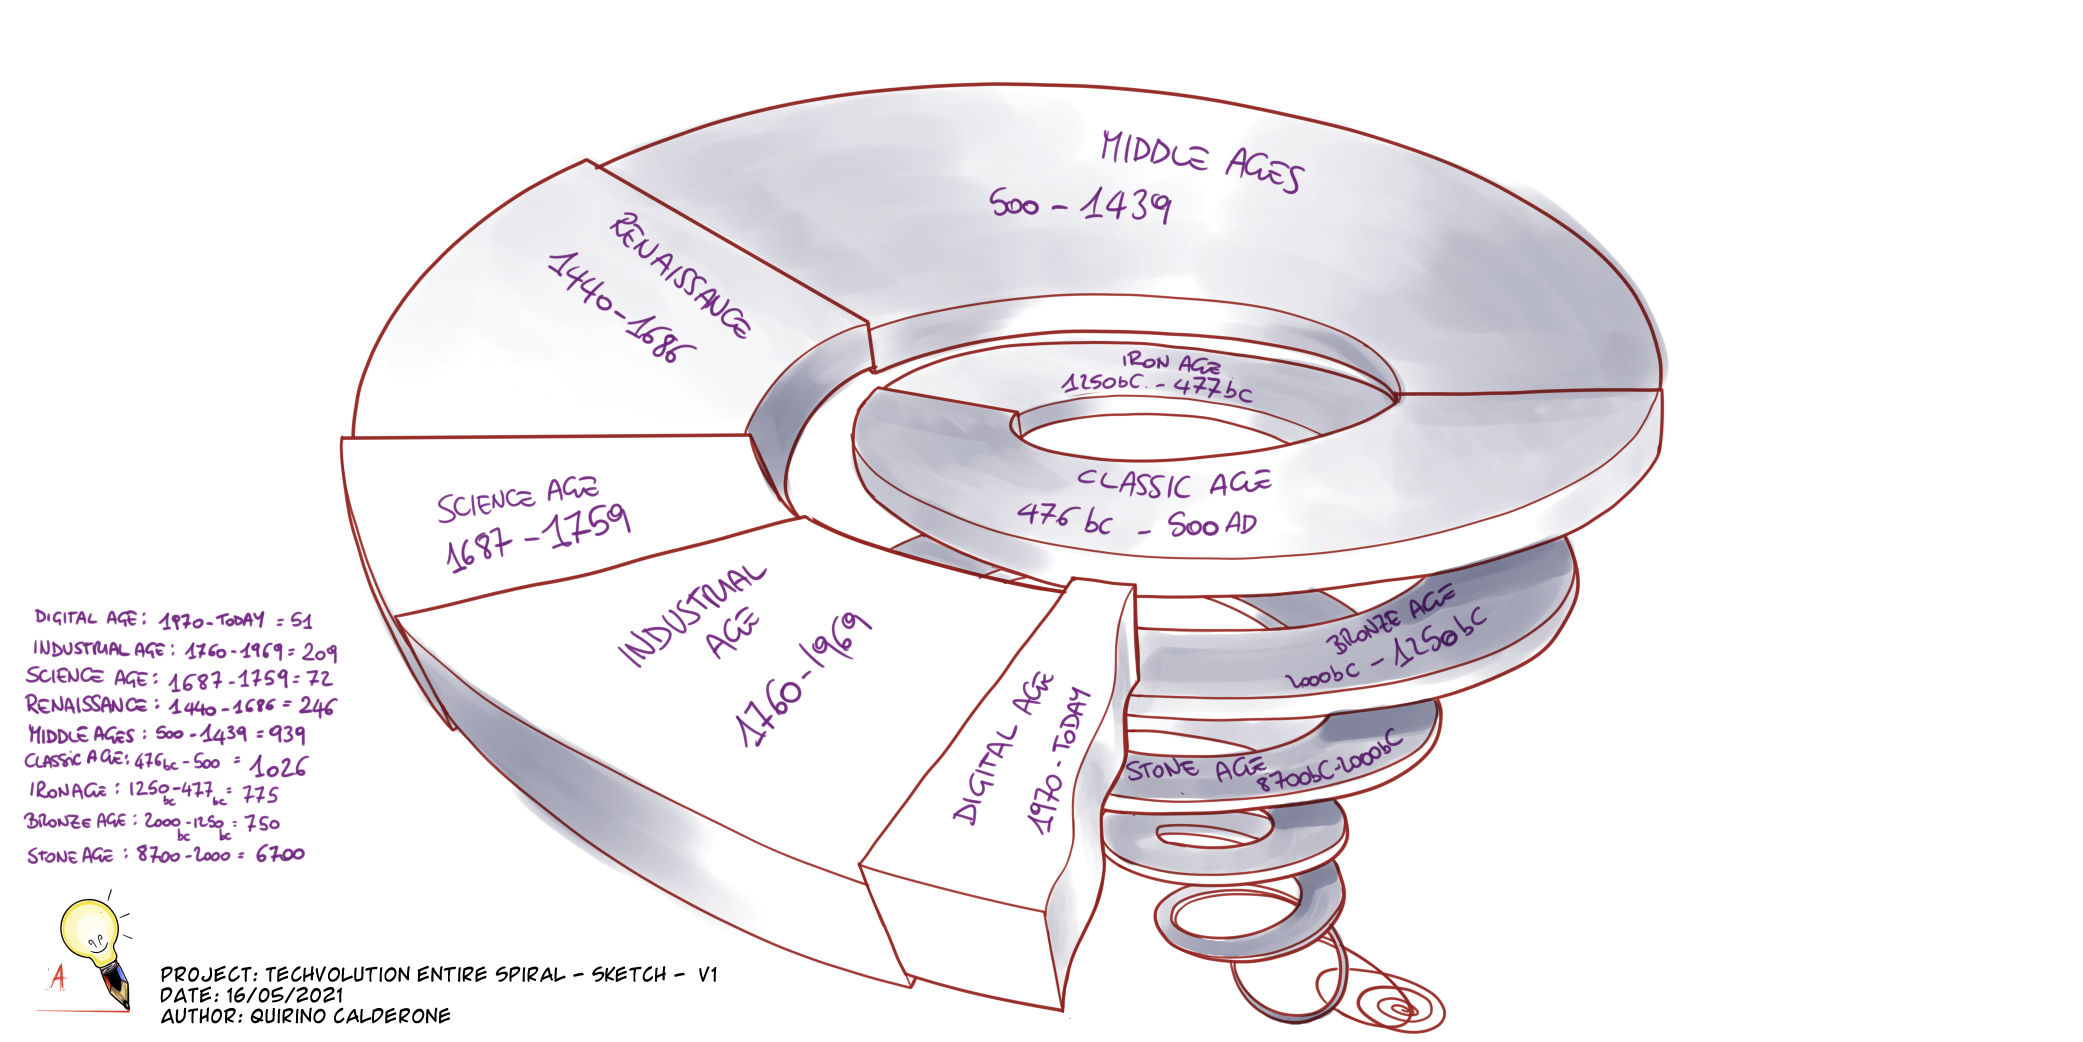 MIDDLE AGES
500 - 1439
RENAISSANCE
1440 - 1686
IRON AGE
1250bC. - 477bC
CLASSIC AGE
476 bC - 500 AD
SCIENCE AGE
1687 - 1759
INDUSTRIAL
AGE
1760 - 1969
BRONZE AGE
2000bC - 1250bC
DIGITAL AGE
1970 - TODAY
STONE AGE
8700bC-2000bC
DIGITAL AGE: 1970 - TODAY = 51
INDUSTRIAL AGE: 1760-1969 = 209
SCIENCE AGE: 1687-1759 = 72
RENAISSANCE: 1440-1686 = 246
MIDDLE AGES: 500 - 1439 = 939
CLASSIC AGE: 476bc - 500 = 1026
IRON AGE: 1250bc - 477bc = 775
BRONZE AGE: 2000bc - 1250bc = 750
STONE AGE: 8700 - 2000 = 6700
A
PROJECT: TECHVOLUTION ENTIRE SPIRAL - SKETCH - V1
DATE: 16/05/2021
AUTHOR: QUIRINO CALDERONE